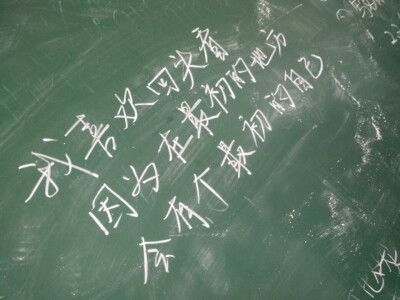 我喜欢回头看
因为在最初的地方
有个最初的自己